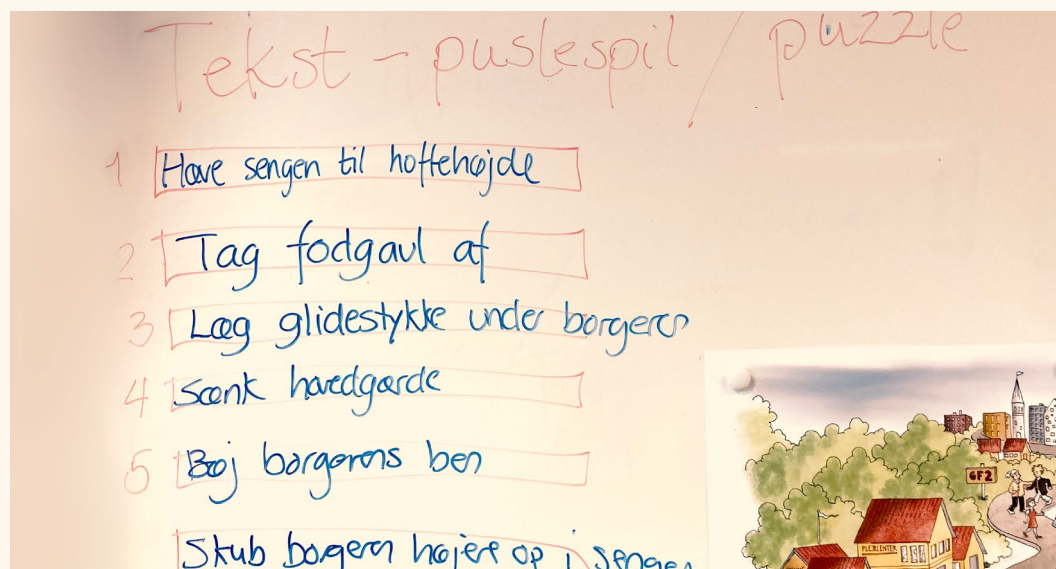 Tekst - puslespil / puzzle
1 Hæve sengen til hoftehøjde
2 Tag fodgavl af
3 Læg glidestykke under borgeren
4 Sænk hovedgærde
5 Bøj borgerens ben
Skub borgeren højere op i sengen
GF2
PLEJECENTER